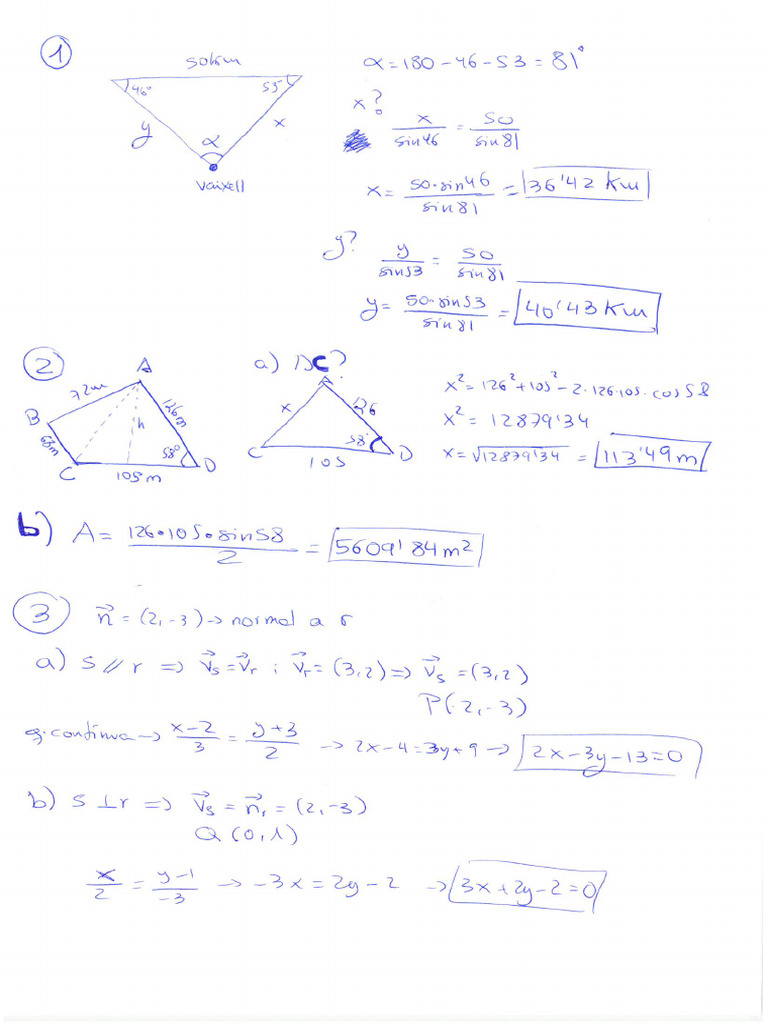 1
50km
46° 53°
y α x
vaixell
α = 180 - 46 - 53 = 81°
x?
x/sin46 = 50/sin81
x = 50·sin46/sin81 = 36'42 Km
y?
y/sin53 = 50/sin81
y = 50·sin53/sin81 = 40'43 Km
2
A
72m
B 126m
68m h
58°
C D
105m
a) DC?
A
x 126
58°
C D
105
x² = 126² + 105² - 2·126·105·cos58
x² = 12879'34
x = √12879'34 = 113'49 m
b) A = 126·105·sin58/2 = 5609'84 m²
3 n⃗ = (2,-3) → normal a r
a) s // r ⇒ v⃗s = v⃗r ; v⃗r = (3,2) ⇒ v⃗s = (3,2)
P(2,-3)
eq. contínua → x-2/3 = y+3/2 → 2x-4 = 3y+9 → 2x-3y-13=0
b) s ⊥ r ⇒ v⃗s = n⃗r = (2,-3)
Q(0,1)
x/2 = y-1/-3 → -3x = 2y-2 → 3x+2y-2=0